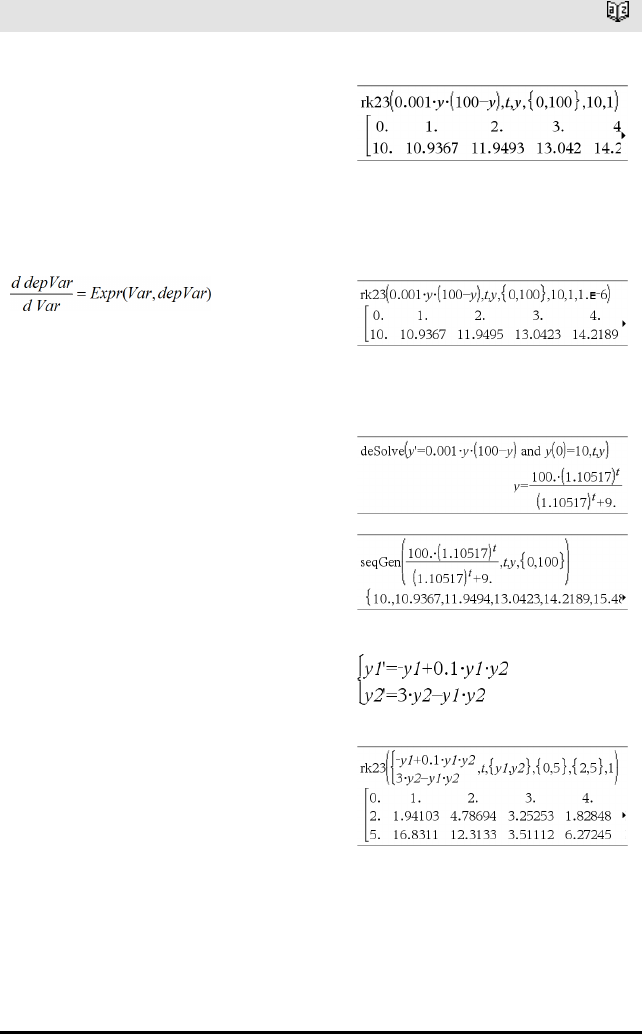 a z
rk23(0.001·y·(100−y),t,y,{0,100},10,1)
[0. 1. 2. 3. 4
10. 10.9367 11.9493 13.042 14.2
d depVar / d Var = Expr(Var, depVar)
rk23(0.001·y·(100−y),t,y,{0,100},10,1,1.ᴇ-6)
[0. 1. 2. 3. 4.
10. 10.9367 11.9495 13.0423 14.2189
deSolve(y'=0.001·y·(100−y) and y(0)=10,t,y)
y=100.·(1.10517)^t / (1.10517)^t+9.
seqGen(100.·(1.10517)^t / (1.10517)^t+9. ,t,y,{0,100})
{10.,10.9367,11.9494,13.0423,14.2189,15.48
{y1'=-y1+0.1·y1·y2
y2'=3·y2−y1·y2
rk23({-y1+0.1·y1·y2
3·y2−y1·y2 ,t,{y1,y2},{0,5},{2,5},1)
[0. 1. 2. 3. 4.
2. 1.94103 4.78694 3.25253 1.82848
5. 16.8311 12.3133 3.51112 6.27245